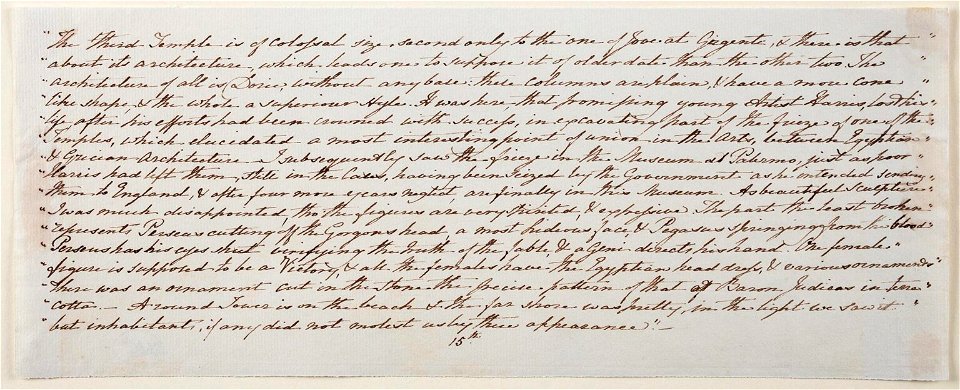 "The third Temple is of Colossal size, second only to the one of Jove at Girgente, & there is that
"about it architecture, which leads one to suppose it of older date than the other two. The "
"architecture of all is Doric, without any base: these columns are plain, & have a more cone "
"like shape, & the whole a superiour style. It was here that promissing young Artist Harris, lost his "
"life after his efforts had been crowned with success, in excavating part of the frieze of one of the "
"Temples, which elucidated a most interesting point of union in the Arts, between Egyptian "
"& Grecian Architecture. I subsequently saw the freeze in the Museum at Palermo, just as poor "
"Harris had left them, still in the Cases, having been seized by the Government as he intended sending "
"them to England, & after four more years neglect, are finally in this Museum. As beautiful Sculpture "
"I was much disappointed, tho' the figures are very spirited, & expressive. The part the least broken "
"represents Perseus cutting off the Gorgons head, a most hideous face, & Pegasus springing from the blood
"Perseus has his eyes shut verifying the truth of the fable, & a Geni directs his hand. One female "
"figure is supposed to be a Victory, & all the females have the Egyptian head dress, & various ornaments
"There was an ornament cut in the stone the precise pattern of that of Baron Judicas in terra
"cotta. — A round Tower is on the beach & the far shore was pretty, in the light we saw it "
"but inhabitants, if any did not molest us by their appearance". —
15th